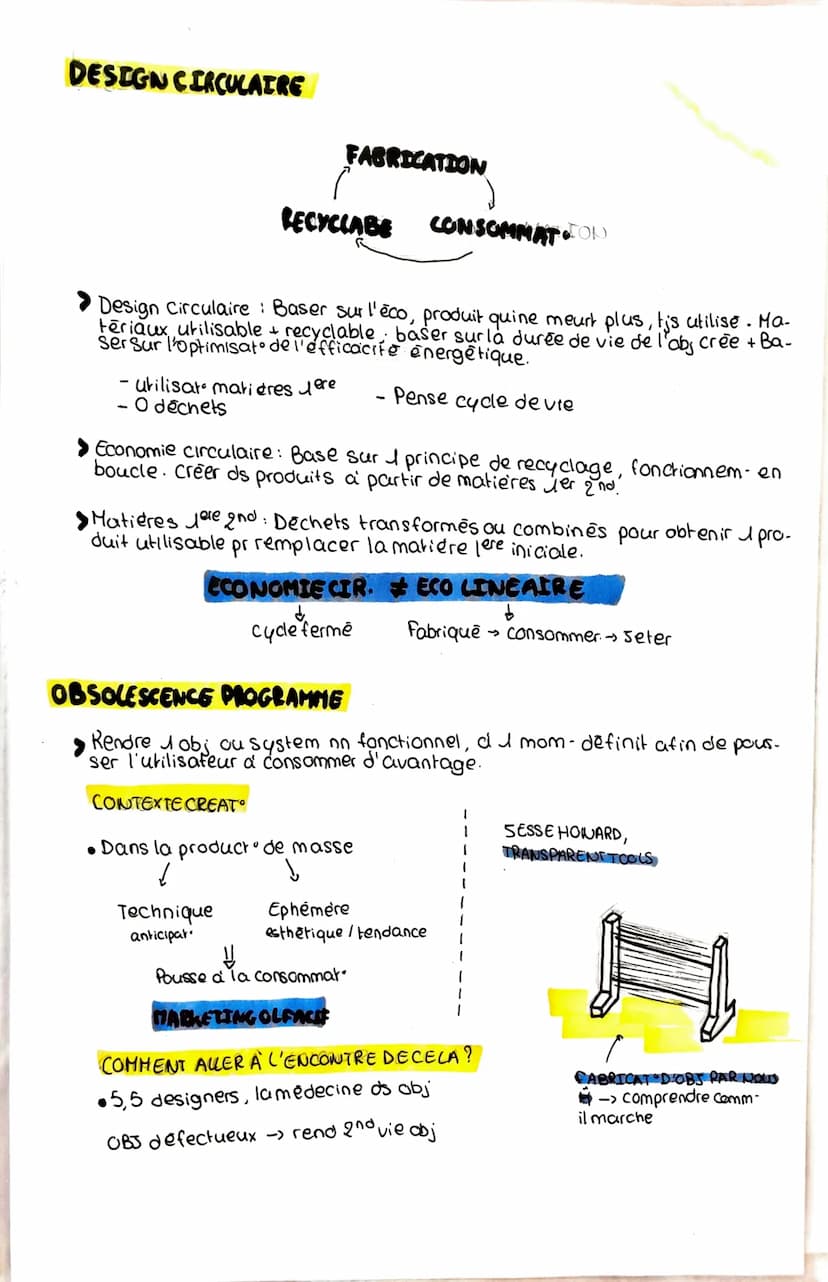 DESIGN CIRCULAIRE
FABRICATION
RECYCLABE CONSOMMAT°ION
> Design Circulaire : Baser sur l'éco, produit qui ne meurt plus, tjs utilisé. Ma-
tériaux utilisable + recyclable. baser sur la durée de vie de l'obj crée + Ba-
ser sur l'optimisat° de l'efficacité énergétique.
- utilisat° matières 1ere
- 0 déchets
- Pense cycle de vie
> Economie circulaire : Base sur 1 principe de recyclage, fonctionnem- en
boucle. Créer ds produits à partir de matières 1er 2nd.
> Matières 1ere 2nd : Déchets transformés ou combinés pour obtenir 1 pro-
duit utilisable pr remplacer la matière 1ere iniciale.
ECONOMIE CIR. ≠ ECO LINEAIRE
↓ ↓
cycle fermé Fabriqué → consommer → Jeter
OBSOLESCENCE PROGRAMME
> Rendre 1 obj ou system nn fonctionnel, à 1 mom- définit afin de pous-
ser l'utilisateur à consommer d'avantage.
CONTEXTE CREAT°
• Dans la product° de masse
Technique Ephémère
anticipat° esthétique / tendance
⇓
Pousse à la consommat°
MARKETING OLFACIF
COMMENT ALLER À L'ENCONTRE DE CELA ?
• 5,5 designers, la médecine ds obj
OBJ défectueux → rend 2nd vie obj
JESSE HOWARD,
TRANSPARENT TOOLS
FABRICAT° D'OBJ PAR NOUS
→ comprendre comm-
il marche